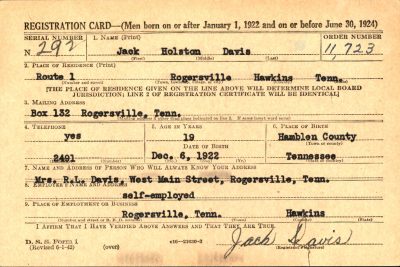 REGISTRATION CARD—(Men born on or after January 1, 1922 and on or before June 30, 1924)
SERIAL NUMBER 1. NAME (Print) ORDER NUMBER
N 292 Jack Holston Davis 11,723
(First) (Middle) (Last)
2. PLACE OF RESIDENCE (Print)
Route 1 Rogersville Hawkins Tenn.
(Number and street) (Town, township, village, or city) (County) (State)
[THE PLACE OF RESIDENCE GIVEN ON THE LINE ABOVE WILL DETERMINE LOCAL BOARD
JURISDICTION; LINE 2 OF REGISTRATION CERTIFICATE WILL BE IDENTICAL]
3. MAILING ADDRESS
Box 132 Rogersville, Tenn.
4. TELEPHONE 5. AGE IN YEARS 6. PLACE OF BIRTH
yes 19 Hamblen County
DATE OF BIRTH (Town or county)
2491 Dec. 6, 1922 Tennessee
7. NAME AND ADDRESS OF PERSON WHO WILL ALWAYS KNOW YOUR ADDRESS
Mrs. R.L. Davis, West Main Street, Rogersville, Tenn.
8. EMPLOYER'S NAME AND ADDRESS
self-employed
9. PLACE OF EMPLOYMENT OR BUSINESS
Rogersville, Tenn. Hawkins
I AFFIRM THAT I HAVE VERIFIED ABOVE ANSWERS AND THAT THEY ARE TRUE.
D. S. S. Form 1
(Revised 6-1-42) (over) Jack Davis